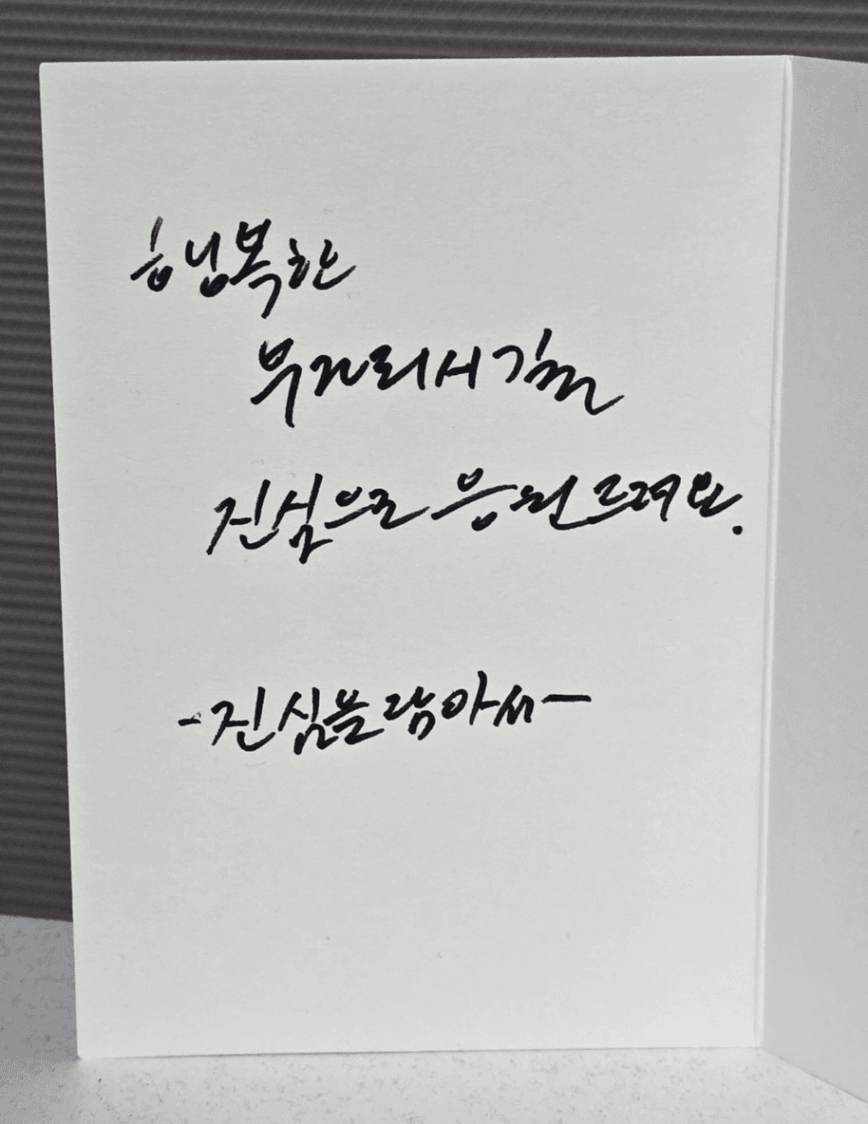 행복한
부자되시길
진심으로 응원드려요.
-진심을 담아서-